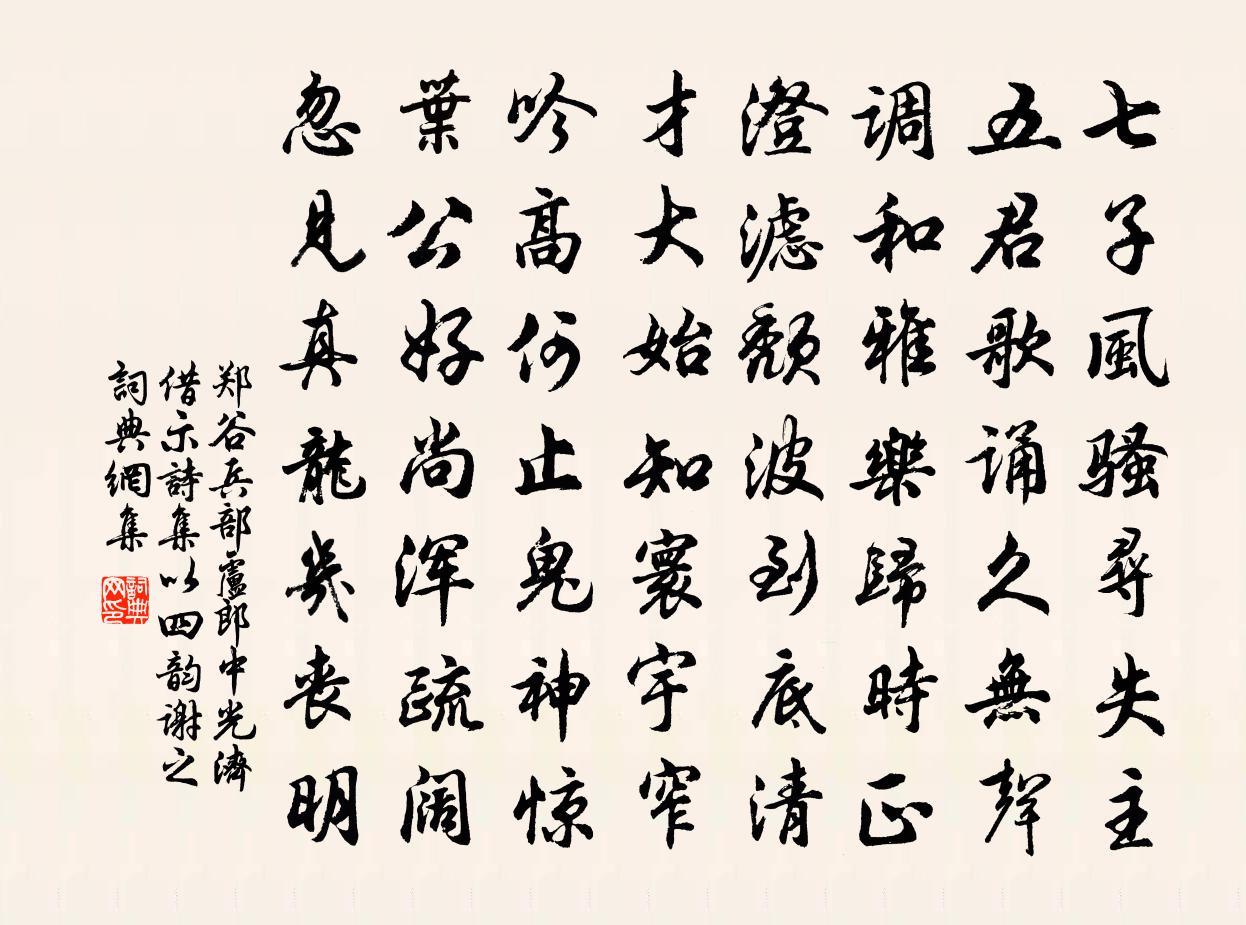 七子風骚尋失主
五君歌诵久無聲
调和雅樂歸時正
澄滤颓波到底清
才大始知寰宇窄
吟高何止鬼神惊
葉公好尚浑疏阔
忽見真龍幾丧明
郑谷兵部盧郎中光濟
借示詩集以四韵谢之
詞典網集
詞典网印